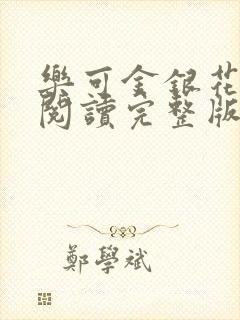 樂可金銀花
閱讀完整版
鄭學斌